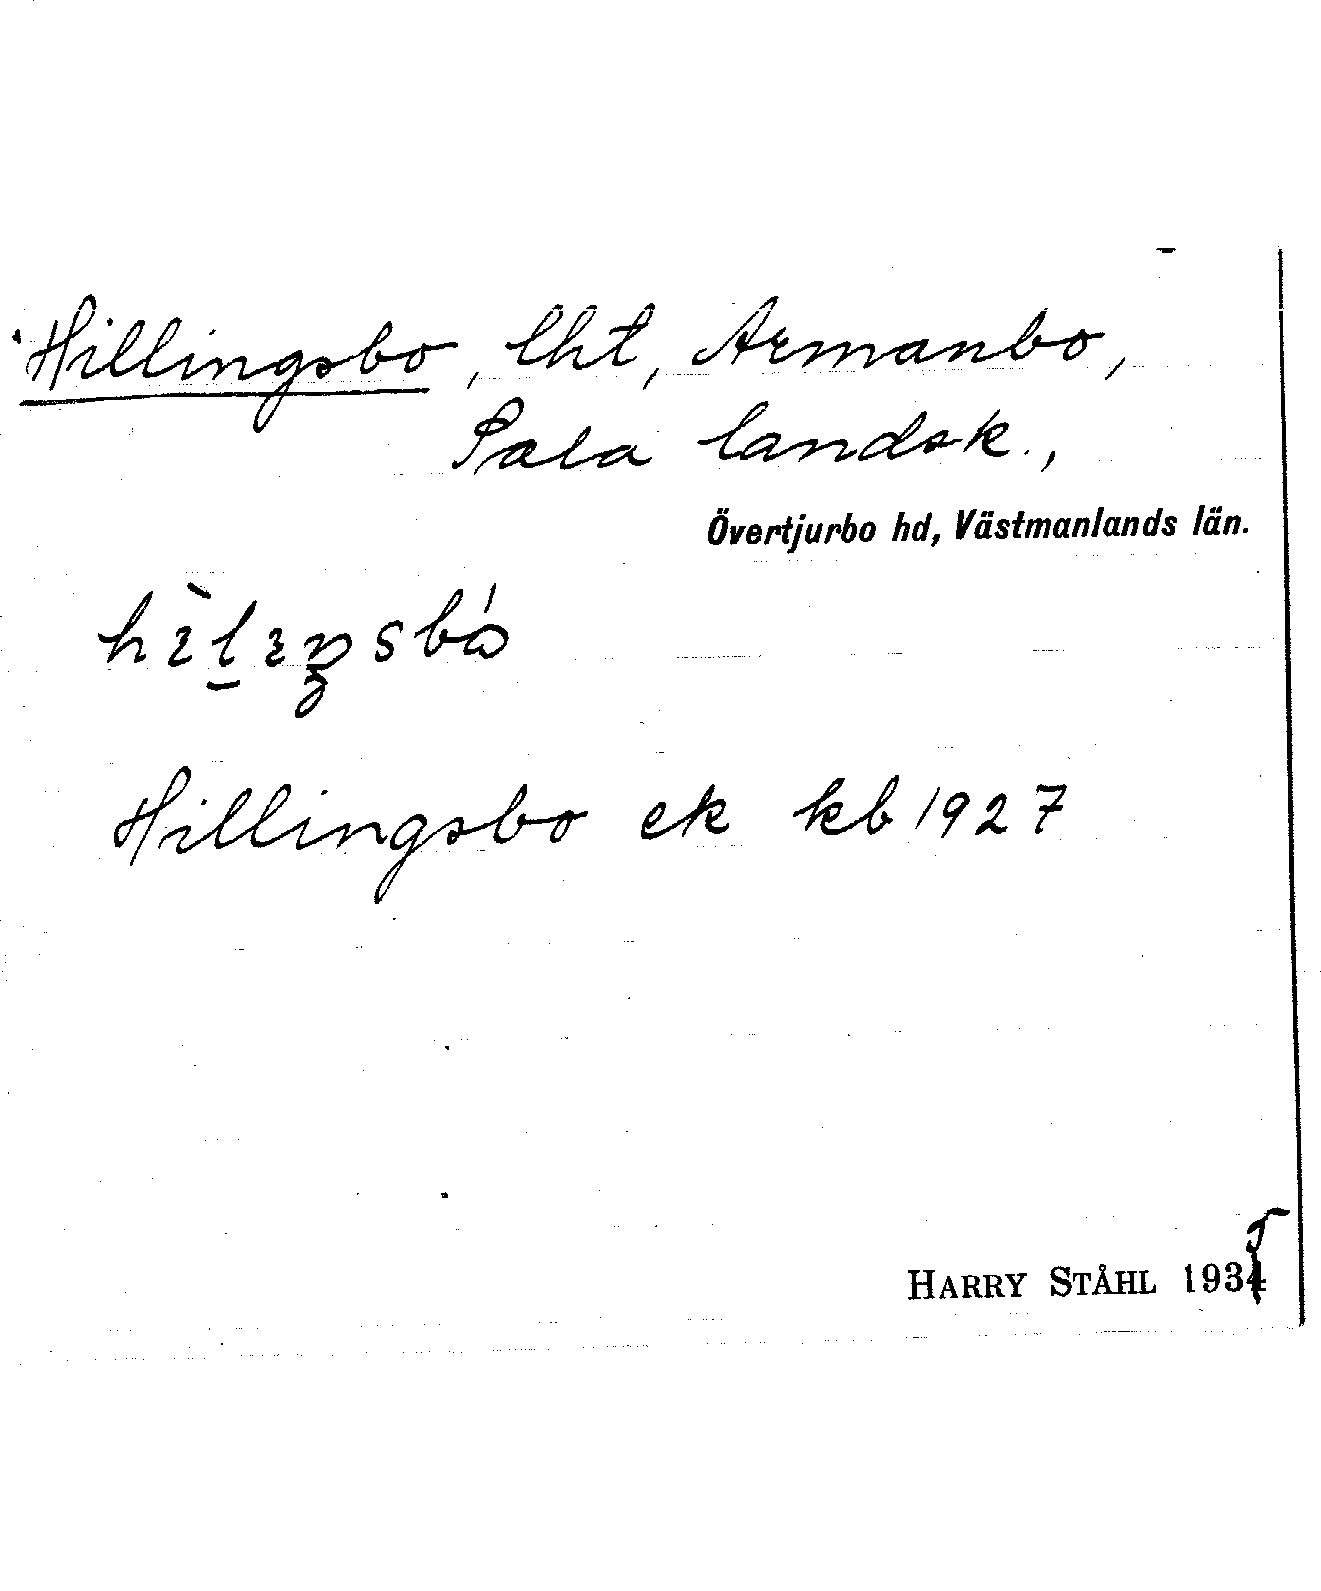 Hillingsbo, lht, Armanbo,
Sala landsk.,
Övertjurbo hd, Västmanlands län.
Hillingsbo ek kb 1927
HARRY STÅHL 1935